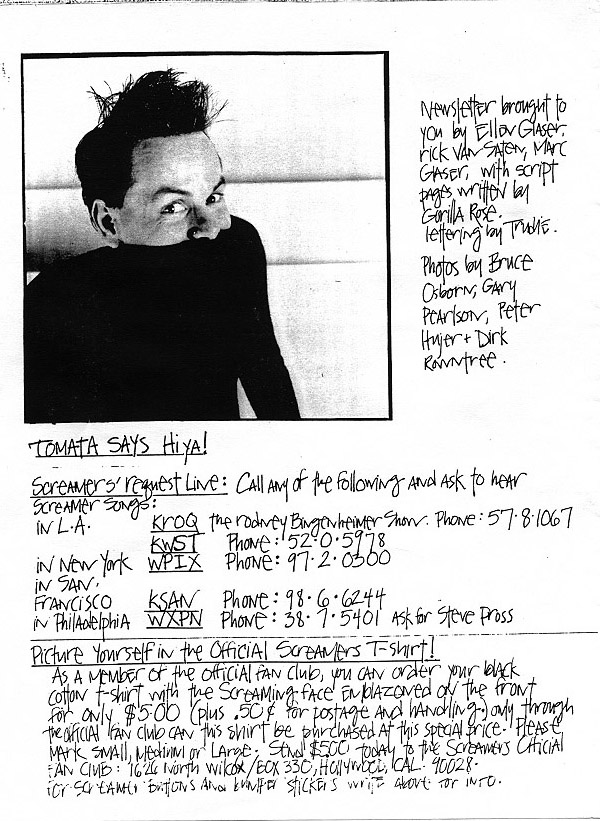 Newsletter brought to
you by Ellen Glaser,
rick Van Saten, Marc
Glaser, with script
pages written by
Gorilla Rose.
lettering by Trudie.
Photos by Bruce
Osborn, Gary
Pearlson, Peter
Hujer + Dirk
Rowntree.
TOMATA SAYS Hiya!
Screamers' request Line: Call any of the following and ask to hear
Screamer Songs:
in L.A. KROQ the rodney Bingenheimer Show. Phone: 57·8·1067
KWST Phone: 52·0·5978
in New York WPIX Phone: 97·2·0300
in San.
Francisco KSAN Phone: 98·6·6244
in Philadelphia WXPN Phone: 38·7·5401 ask for Steve Pross
Picture Yourself in the Official Screamers T-shirt!
As a member of the official fan club, you can order your black
cotton t-shirt with the Screaming face emblazoned on the front
for only $5.00 (plus .50¢ for postage and handling.) only through
the official fan club can this shirt be purchased at this special price. Please
Mark Small, Medium or Large. Send $500 today to the Screamers Official
Fan Club: 1626 North Wilcox/Box 330, Hollywood, CAL. 90028.
for Screamer Buttons and bumper stickers write above for info.